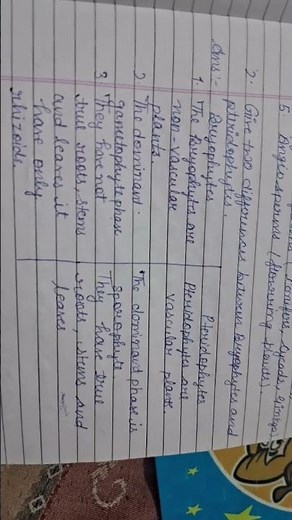 Conifers, cycads, Ginkgo
5. Angiosperms (flowering plants)
2. Give two differences between Bryophytes and
pteridophytes.
Ans:- Bryophytes Pteridophytes
1. The Bryophytes are Pteridophytes are
non-vascular vascular plants
plants.
2 The dominant. The dominant phase is
gametophyte phase sporophyte
3 They have not They have true
true roots, stems roots, stems and
and leaves it leaves
have only
rhizoids